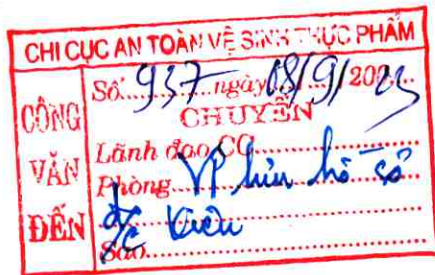 CHI CỤC AN TOÀN VỆ SINH THỰC PHẨM
CÔNG VĂN ĐẾN
Số 937 ngày 08/9/2023
CHUYỂN
Lãnh đạo CC
Phòng VP lưu hồ sơ
đ/c
Sao